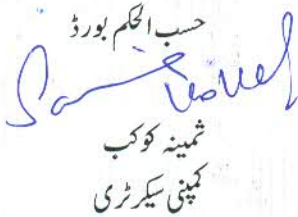 حسب الحکم بورڈ
ثمینہ کوکب
کمپنی سیکرٹری